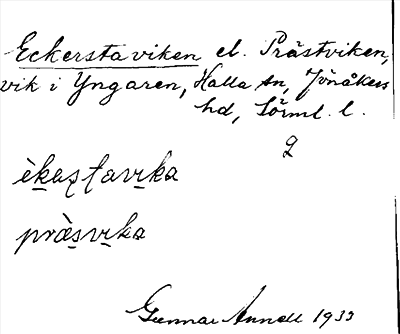 Eckerstaviken el. Prästviken,
vik i Yngaren, Halla sn, Jönåkers
hd, Sörml. l.
èkaʂʈavika
pràsvika
Gunnar Arnell 1933